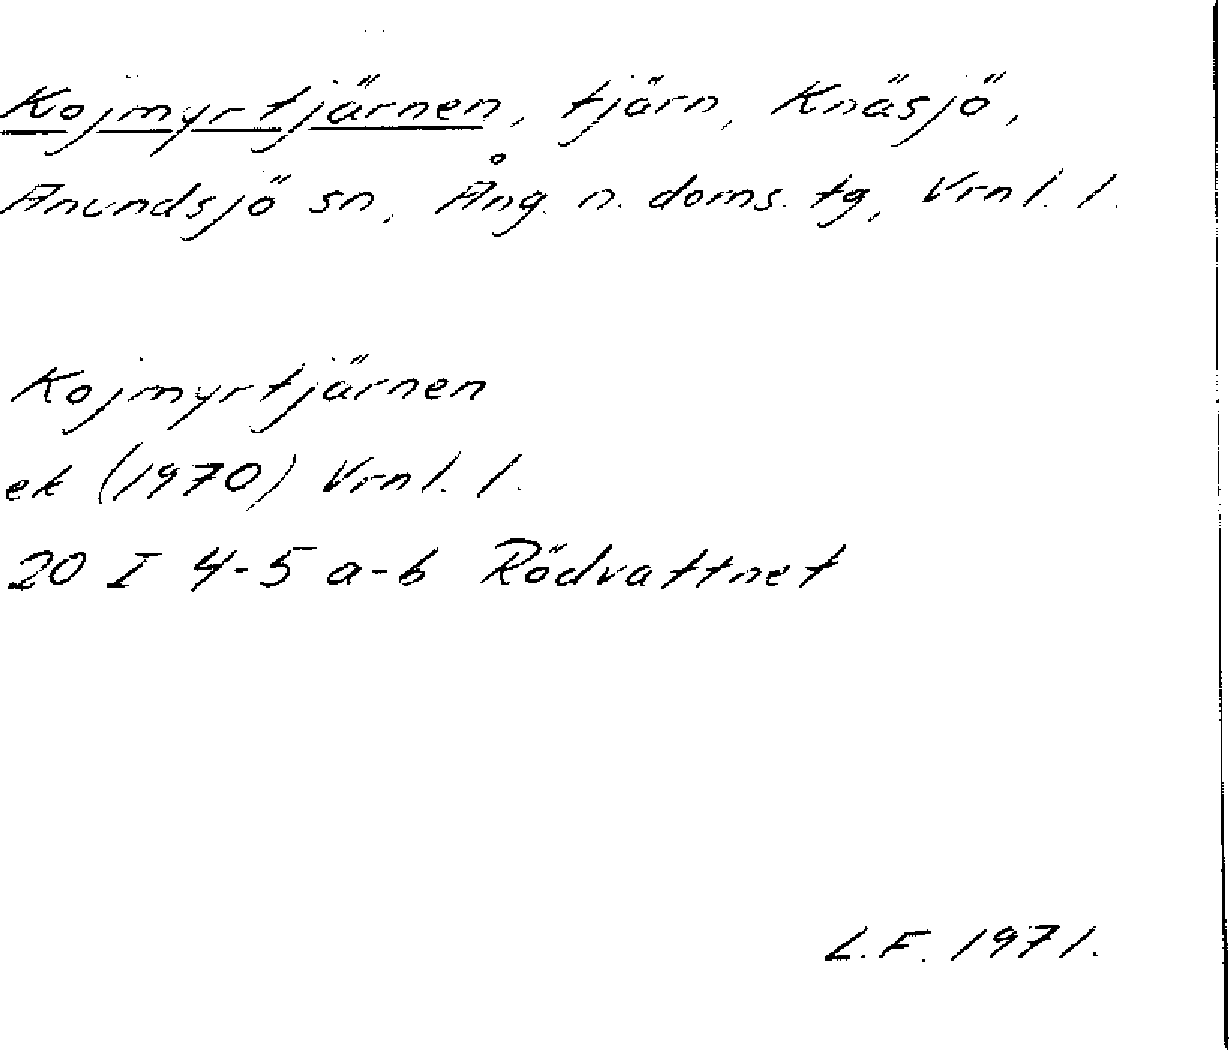 Kojmyrtjärnen, tjärn, Knäsjö,
Anundsjö sn, Ång. n. doms. tg, Vrnl. l.
Kojmyrtjärnen
ek (1970) Vrnl. l.
20 I 4-5 a-b Rödvattnet
L.F. 1971.